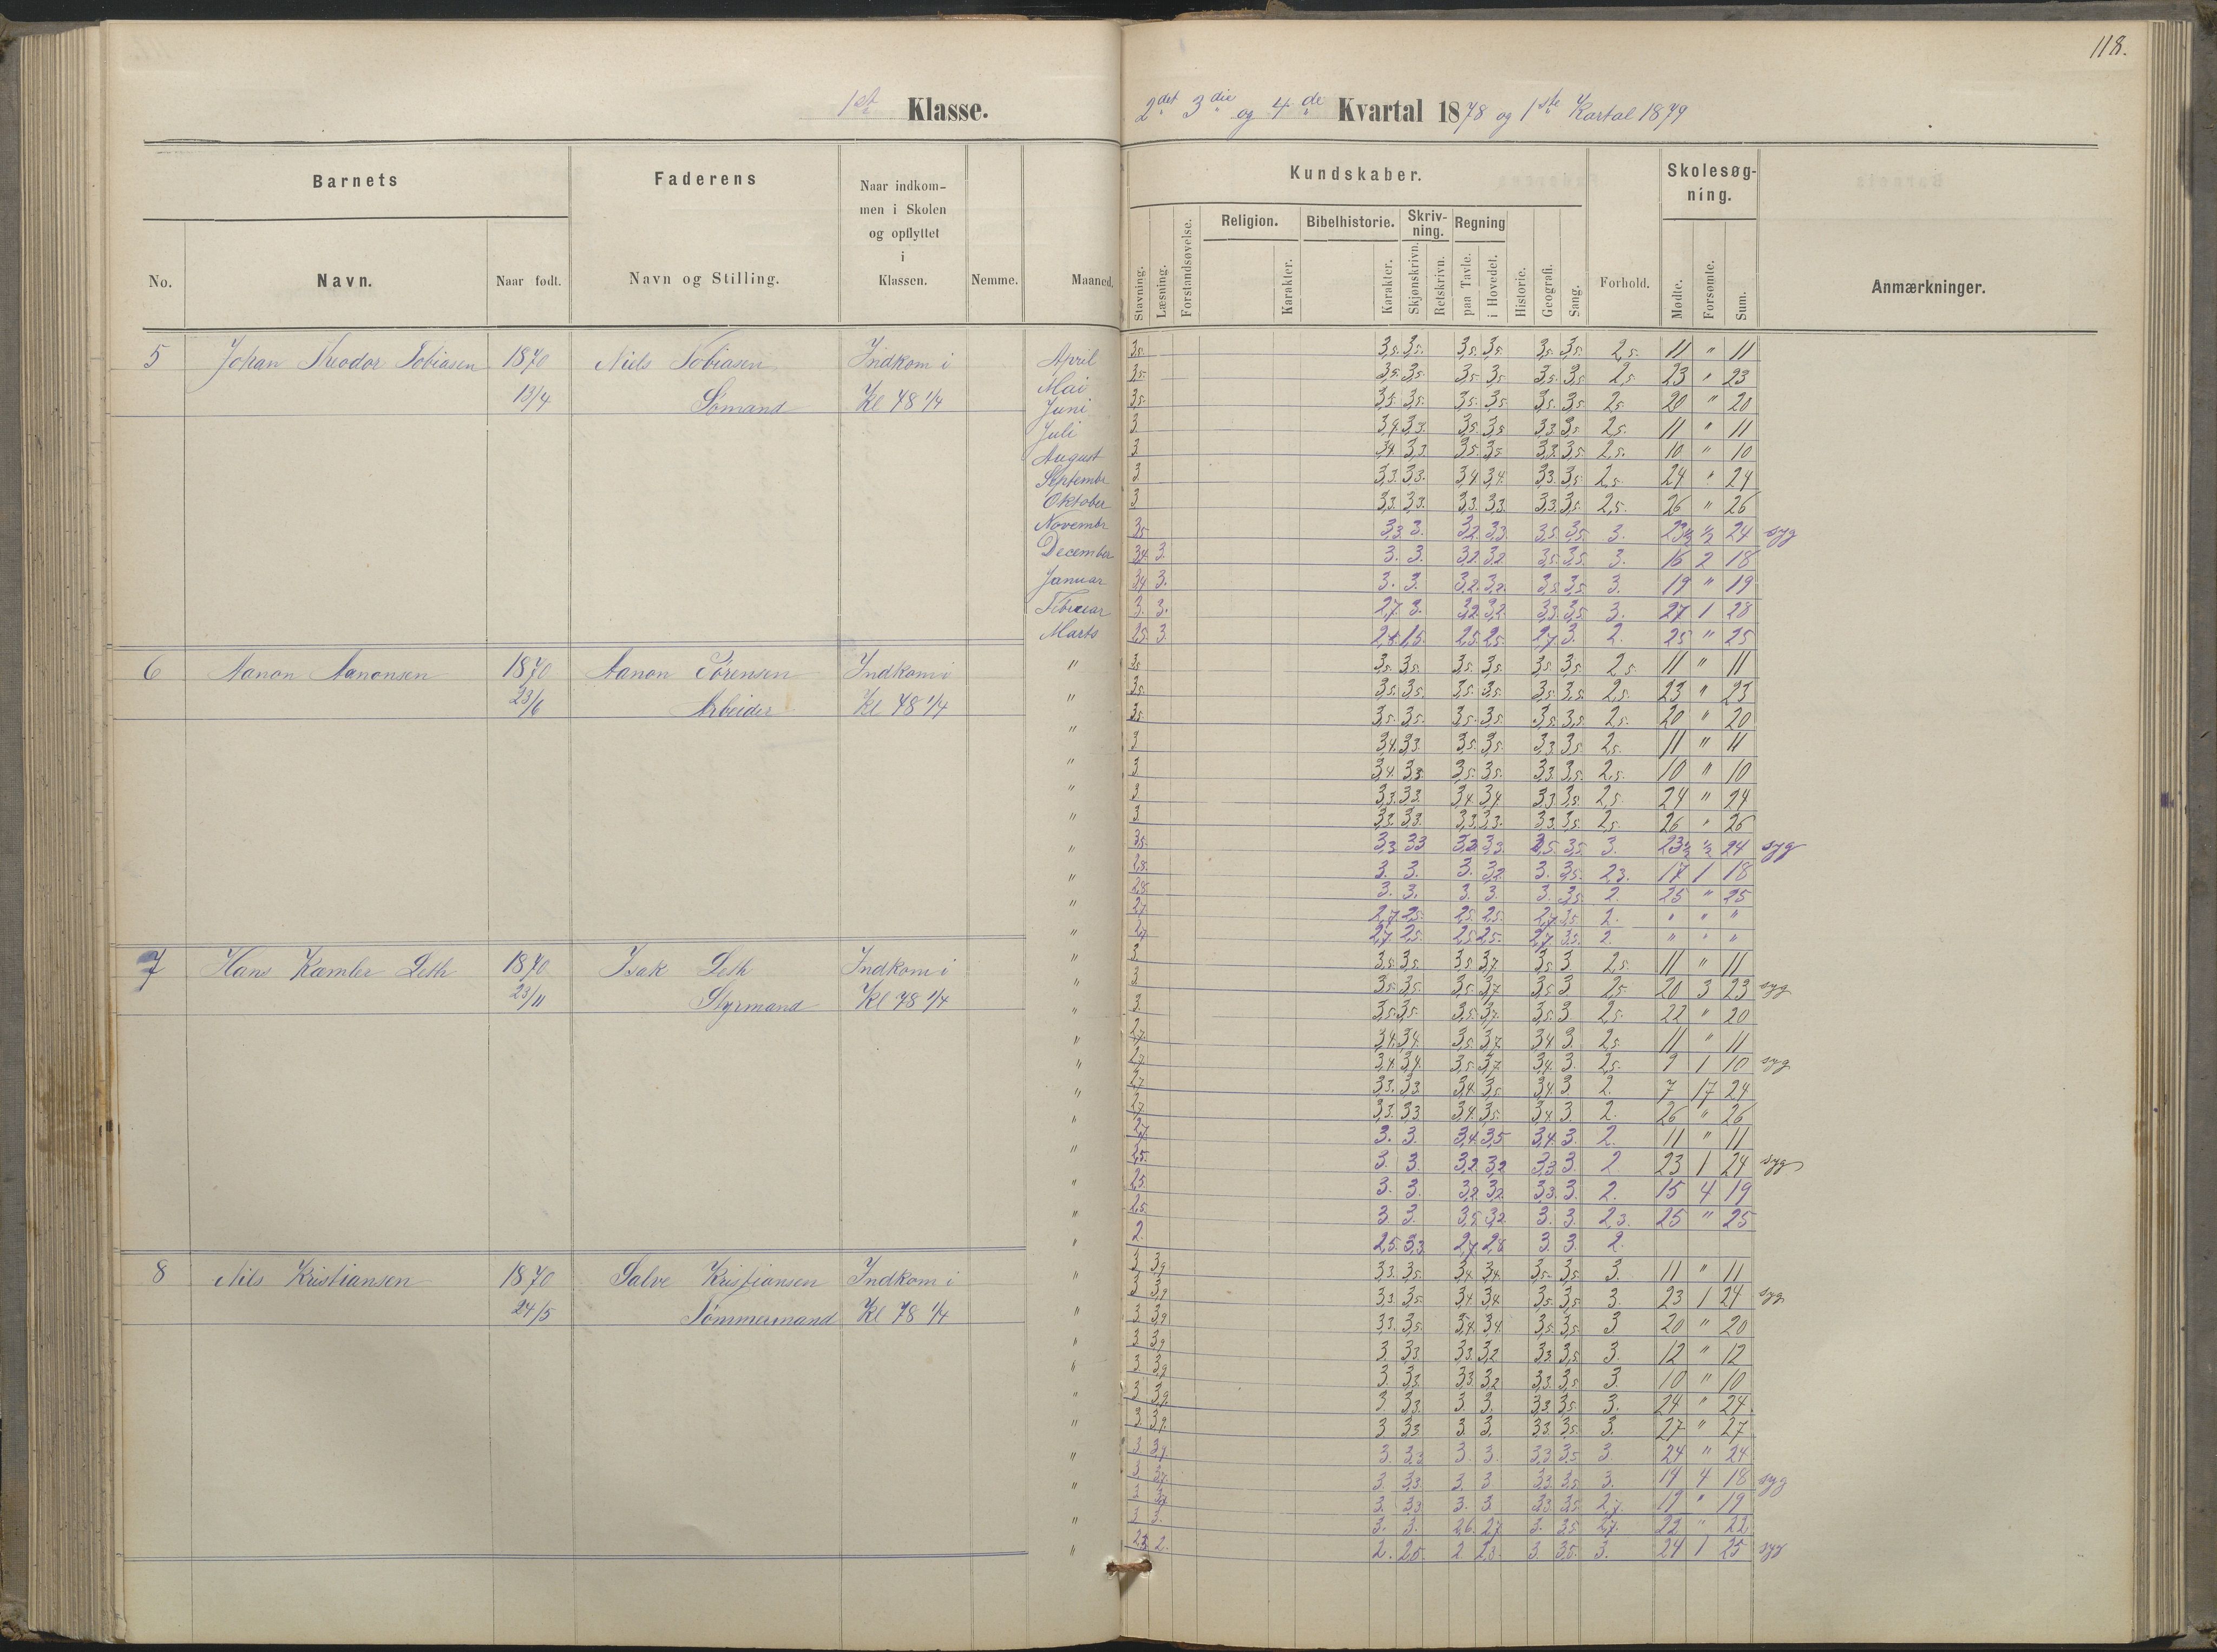 118.
1st Klasse.
2det 3die og 4de Kvartal 1878 og 1ste Kartal 1879
Barnets
Faderens
Naar indkom-
men i Skolen
og opflyttet
i
Klassen.
Nemme.
Maaned.
No.
Navn.
Naar født.
Navn og Stilling.
Kundskaber.
Stavning.
Læsning.
Forstandsøvelse.
Religion.
Karakter.
Bibelhistorie.
Karakter.
Skriv-
ning.
Skjønskrivn.
Retskrivn.
Regning
paa Tavle.
i Hovedet.
Historie.
Geografi.
Sang.
Forhold.
Skolesøg-
ning.
Mødte.
Forsømte.
Sum.
Anmærkninger.
5 Johan Theodor Tobiasen 1870 Niels Tobiasen Indkom i
13/4 Sømand Kl 78 1/4
April 3,5 3,5. 3,5. 3,5. 3,5 3,5. 3,5. 2,5. 11 " 11
Mai 3,5 3,5. 3,5. 3,5 3,5 3,5. 3,5 2,5 23 " 23
Juni 3,5 3,5. 3,5. 3,5. 3,5 3,5. 3,5 2,5 20 " 20
Juli 3 3,4 3,3. 3,5. 3,5 3,3 3,5 2,5. 11 " 11
August 3 3,4. 3,3 3,5. 3,5 3,3 3,5 2,5. 10 " 10
Septembr 3 3,3. 3,3. 3,4 3,4. 3,3. 3,5 2,5. 24 " 24
Oktober 3 3,3. 3,3. 3,3. 3,3. 3,3 3,5 2,5. 26 " 26
Novembr 3,5 3,3 3. 3,2. 3,3. 3,5 3,5. 3. 23½ ½ 24 syg
December 3,4. 3. 3. 3. 3,2. 3,2 3,5. 3,5. 3. 16 2 18
Januar 3,4 3. 3. 3. 3,2. 3,2. 3,5 3,5. 3. 19 " 19
Februar 3. 3. 2,7. 3. 3,2. 3,2 3,3. 3,5 3. 27 1 28
Marts 2,5 3 2,5. 2,5. 2,7 3. 2. 25 " 25
6 Aanon Aanonsen 1870 Aanon Sørensen Indkom i
23/6 Arbeider Kl 78 1/4
" 3,5 3,5. 3,5. 3,5. 3,5. 3,5. 3,5. 2,5. 11 " 11
" 3,5 3,5. 3,5. 3,5. 3,5. 3,5. 3,5. 2,5. 23 " 23
" 3,5 3,5. 3,5. 3,5. 3,5. 3,5. 3,5. 2,5. 20 " 20
" 3 3,4. 3,3. 3,5. 3,5. 3,3 3,5. 2,5. 11 " 11
" 3 3,4. 3,3 3,5. 3,5. 3,3 3,5. 2,5. 10 " 10
" 3 3,3. 3,3. 3,4 3,4 3,3 3,5. 2,5. 24 " 24
" 3 3,3. 3,3. 3,3. 3,3. 3,3. 3,5. 2,5. 26 " 26
" 3,5. 3,3 3,3 3,2. 3,3. 3,5. 3,5. 3. 23½ ½ 24 syg
" 2,8. 3. 3. 3. 3,2. 3. 3,5. 2,3. 17 1 18
" 2,8. 3. 3. 3. 3. 3. 3,5. 2. 25 " 25
" 2,7 2,7. 2,5. 2,5. 2,5. 2,7. 3,5. 2. " " "
" 2,7 2,7. 2,5. 2,5 2,5. 2,7. 3,5. 2. " " "
7 Hans Kamler Leth 1870 Isak Leth Indkom i
23/11 Styrmand Kl 78 1/4
" 3 3,5. 3,5. 3,5. 3,7 3,5 3 2,5. 11 " 11
" 3 3,5. 3,5. 3,5. 3,7 3,5 3 2,5. 20 3 23 syg
" 3. 3,5. 3,5. 3,5. 3,7. 3,5 3 2,5. 22 " 20
" 2,7. 3,4. 3,4. 3,5. 3,7 3,4 3. 2,5. 11 " 11
" 2,7 3,4. 3,4. 3,5. 3,7 3,4. 3. 2,5. 9 1 10 syg
" 2,7 3,3. 3,3 3,4. 3,5 3,4. 3 2. 7 17 24
" 2,7 3,3. 3,3 3,4. 3,5. 3,4. 3. 2. 26 " 26
" 2,7. 3. 3. 3,4. 3,5 3,4. 3. 2. 11 " 11
" 2,5. 3. 3. 3,2 3,2 3,3 3. 2 23 1 24 syg
" 2,5 3. 3. 3,2 3,2 3,3. 3. 2. 15 4 19
" 2,5 3. 3. 3,5 3,2 3. 3. 2,3. 25 " 25
" 2. 2,5. 3,3. 2,7 2,8 3. 3. 2.
8 Nils Kristiansen 1870 Salve Kristiansen Indkom i
24/5 Tømmermand Kl 78 1/4
" 3 3,9 3,3. 3,5. 3,4 3,4 3,5. 3,5. 3. 11 " 11
" 3 3,9 3,3. 3,5. 3,4 3,4 3,5. 3,5 3. 23 1 24 syg
" 3 3,9 3,3. 3,5. 3,4 3,4. 3,5. 3,5. 3 20 " 20
" 3 3,9 3. 3,3 3,3. 3,2 3,3. 3,5 3. 12 " 12
" 3 3,9 3. 3,3. 3,3. 3,2 3,3. 3,5 3. 10 " 10
" 3 3,9. 3 3,3. 3. 3. 3,3. 3,5. 3. 24 " 24.
" 3 3,9. 3 3,3 3. 3. 3,3. 3,5. 3. 27 " 27
" 3 3,7. 3. 3,3 3. 3. 3,3 3,5 3. 24 " 24
" 3. 3,7. 3. 3,3 3. 3 3,3. 3,5 3. 14 4 18 syg
" 3 3. 3,3. 3. 3 3,3. 3,5. 2,7. 19 " 19
" 3 3. 3. 3. 2,6. 2,7 3. 3,5. 2,7. 22 " 22
" 2. 2. 2,5. 2. 2,3. 3. 3,5. 3. 24 1 25 syg